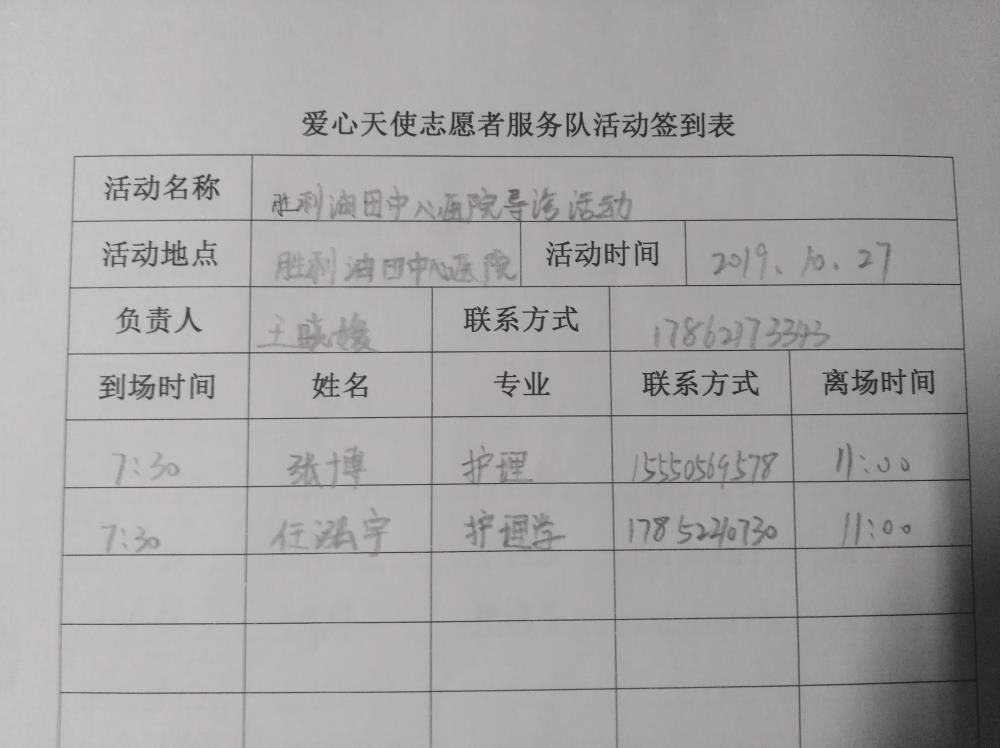 爱心天使志愿者服务队活动签到表
活动名称 胜利油田中心医院导诊活动
活动地点 胜利油田中心医院 活动时间 2019.10.27
负责人 王晓媛 联系方式 17862173343
到场时间 姓名 专业 联系方式 离场时间
7:30 张博 护理 15550569578 11:00
7:30 任泓宇 护理学 17852240730 11:00